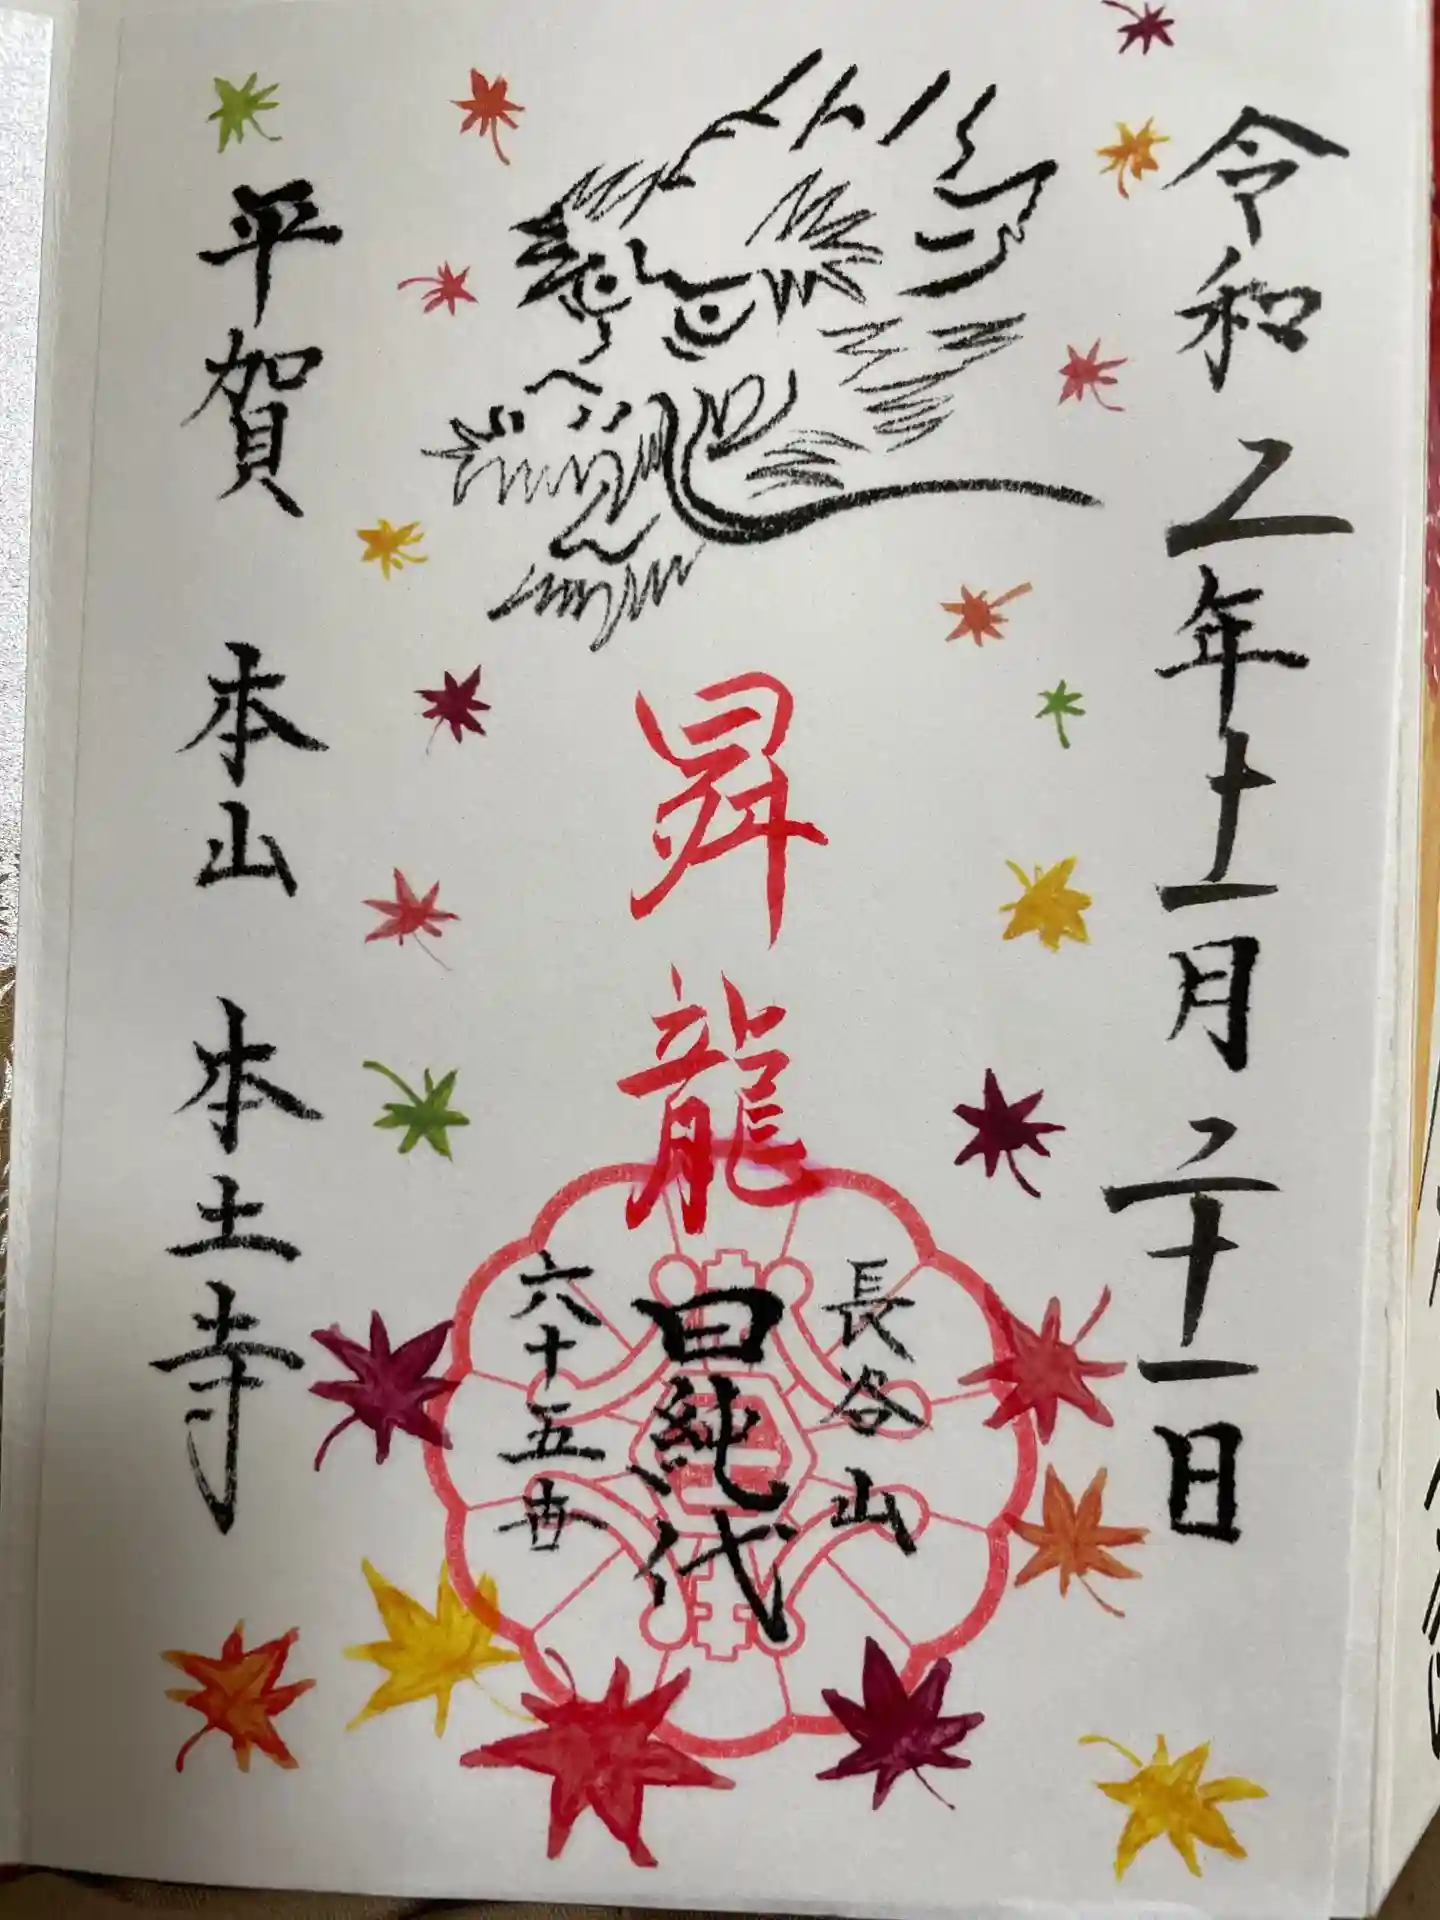 令和二年十一月二十一日
昇龍
長谷山
日純代
六十五世
平賀 本山 本土寺